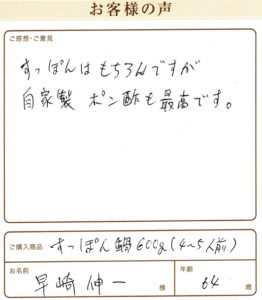 お客様の声
ご感想・ご意見
すっぽんはもちろんですが
自家製 ポン酢も最高です。
ご購入商品 すっぽん鍋600g(4~5人前)
お名前 早崎伸一 様 年齢 64 歳